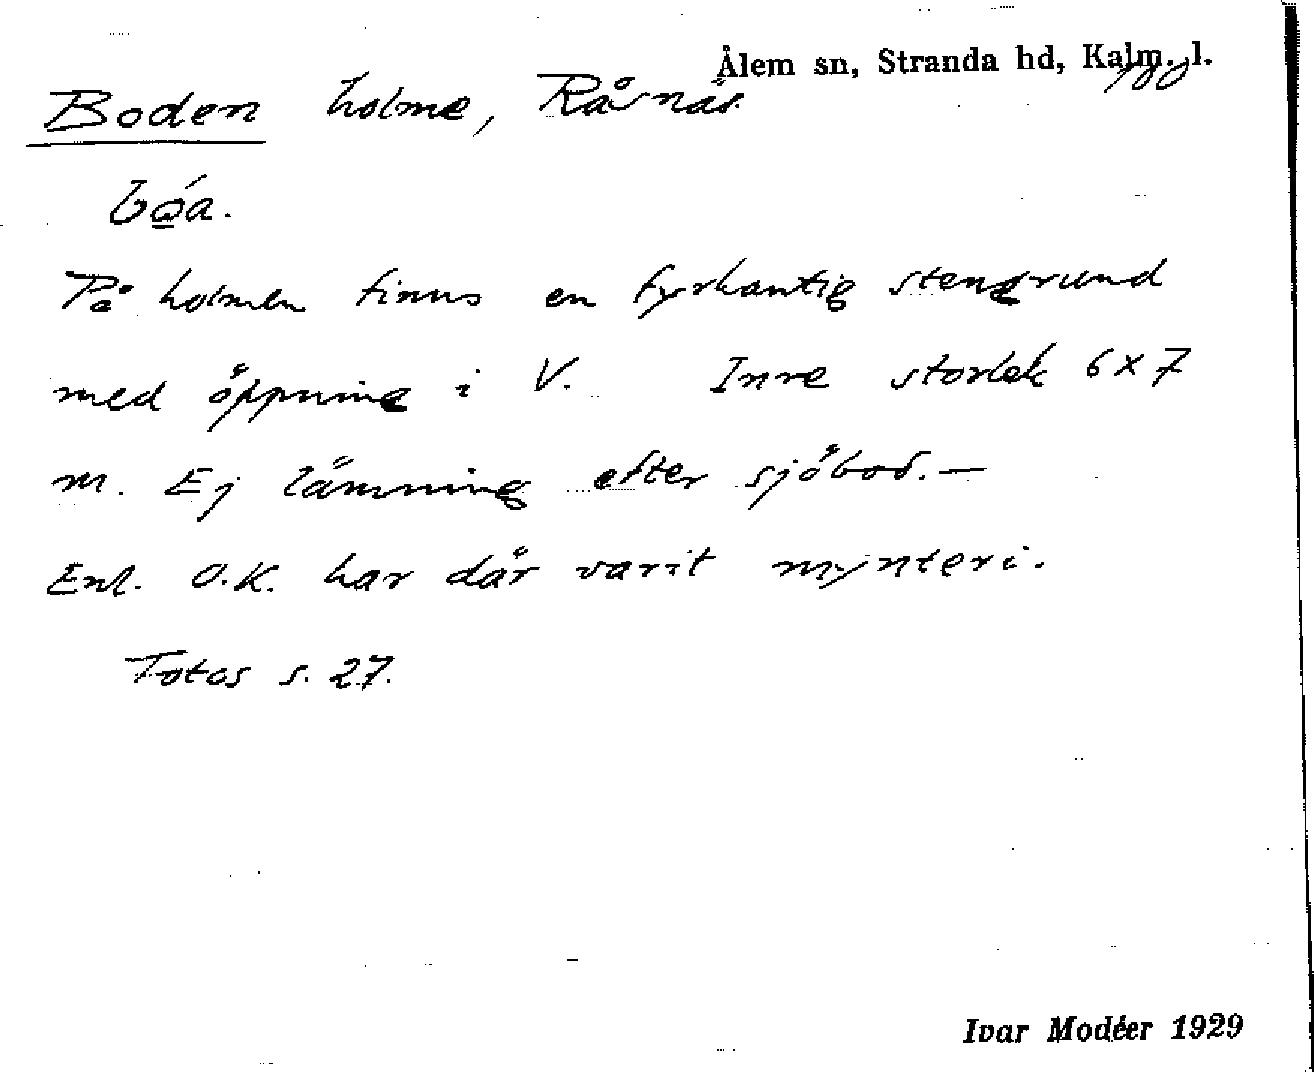 Ålem sn, Stranda hd, Kalm. l.
Boden holme, Råsnäs
På holmen finns en fyrkantig stengrund
med öppning i V. Inre storlek 6x7
m. Ej lämning efter sjöbod. —
Enl. O.K. har där varit mynteri.
Fotos s. 27.
Ivar Modéer 1929